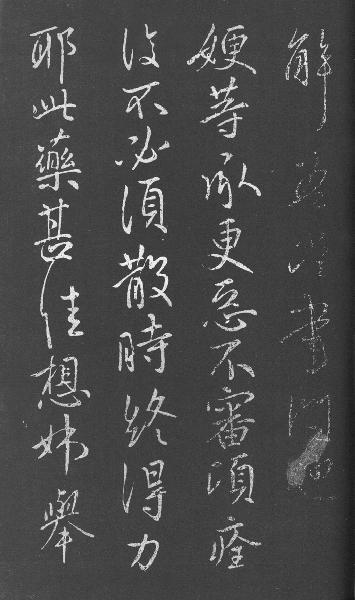 解 書問
㛐等承更惡不審頃痊
復不必須散時終得力
耶此藥甚佳想姊舉